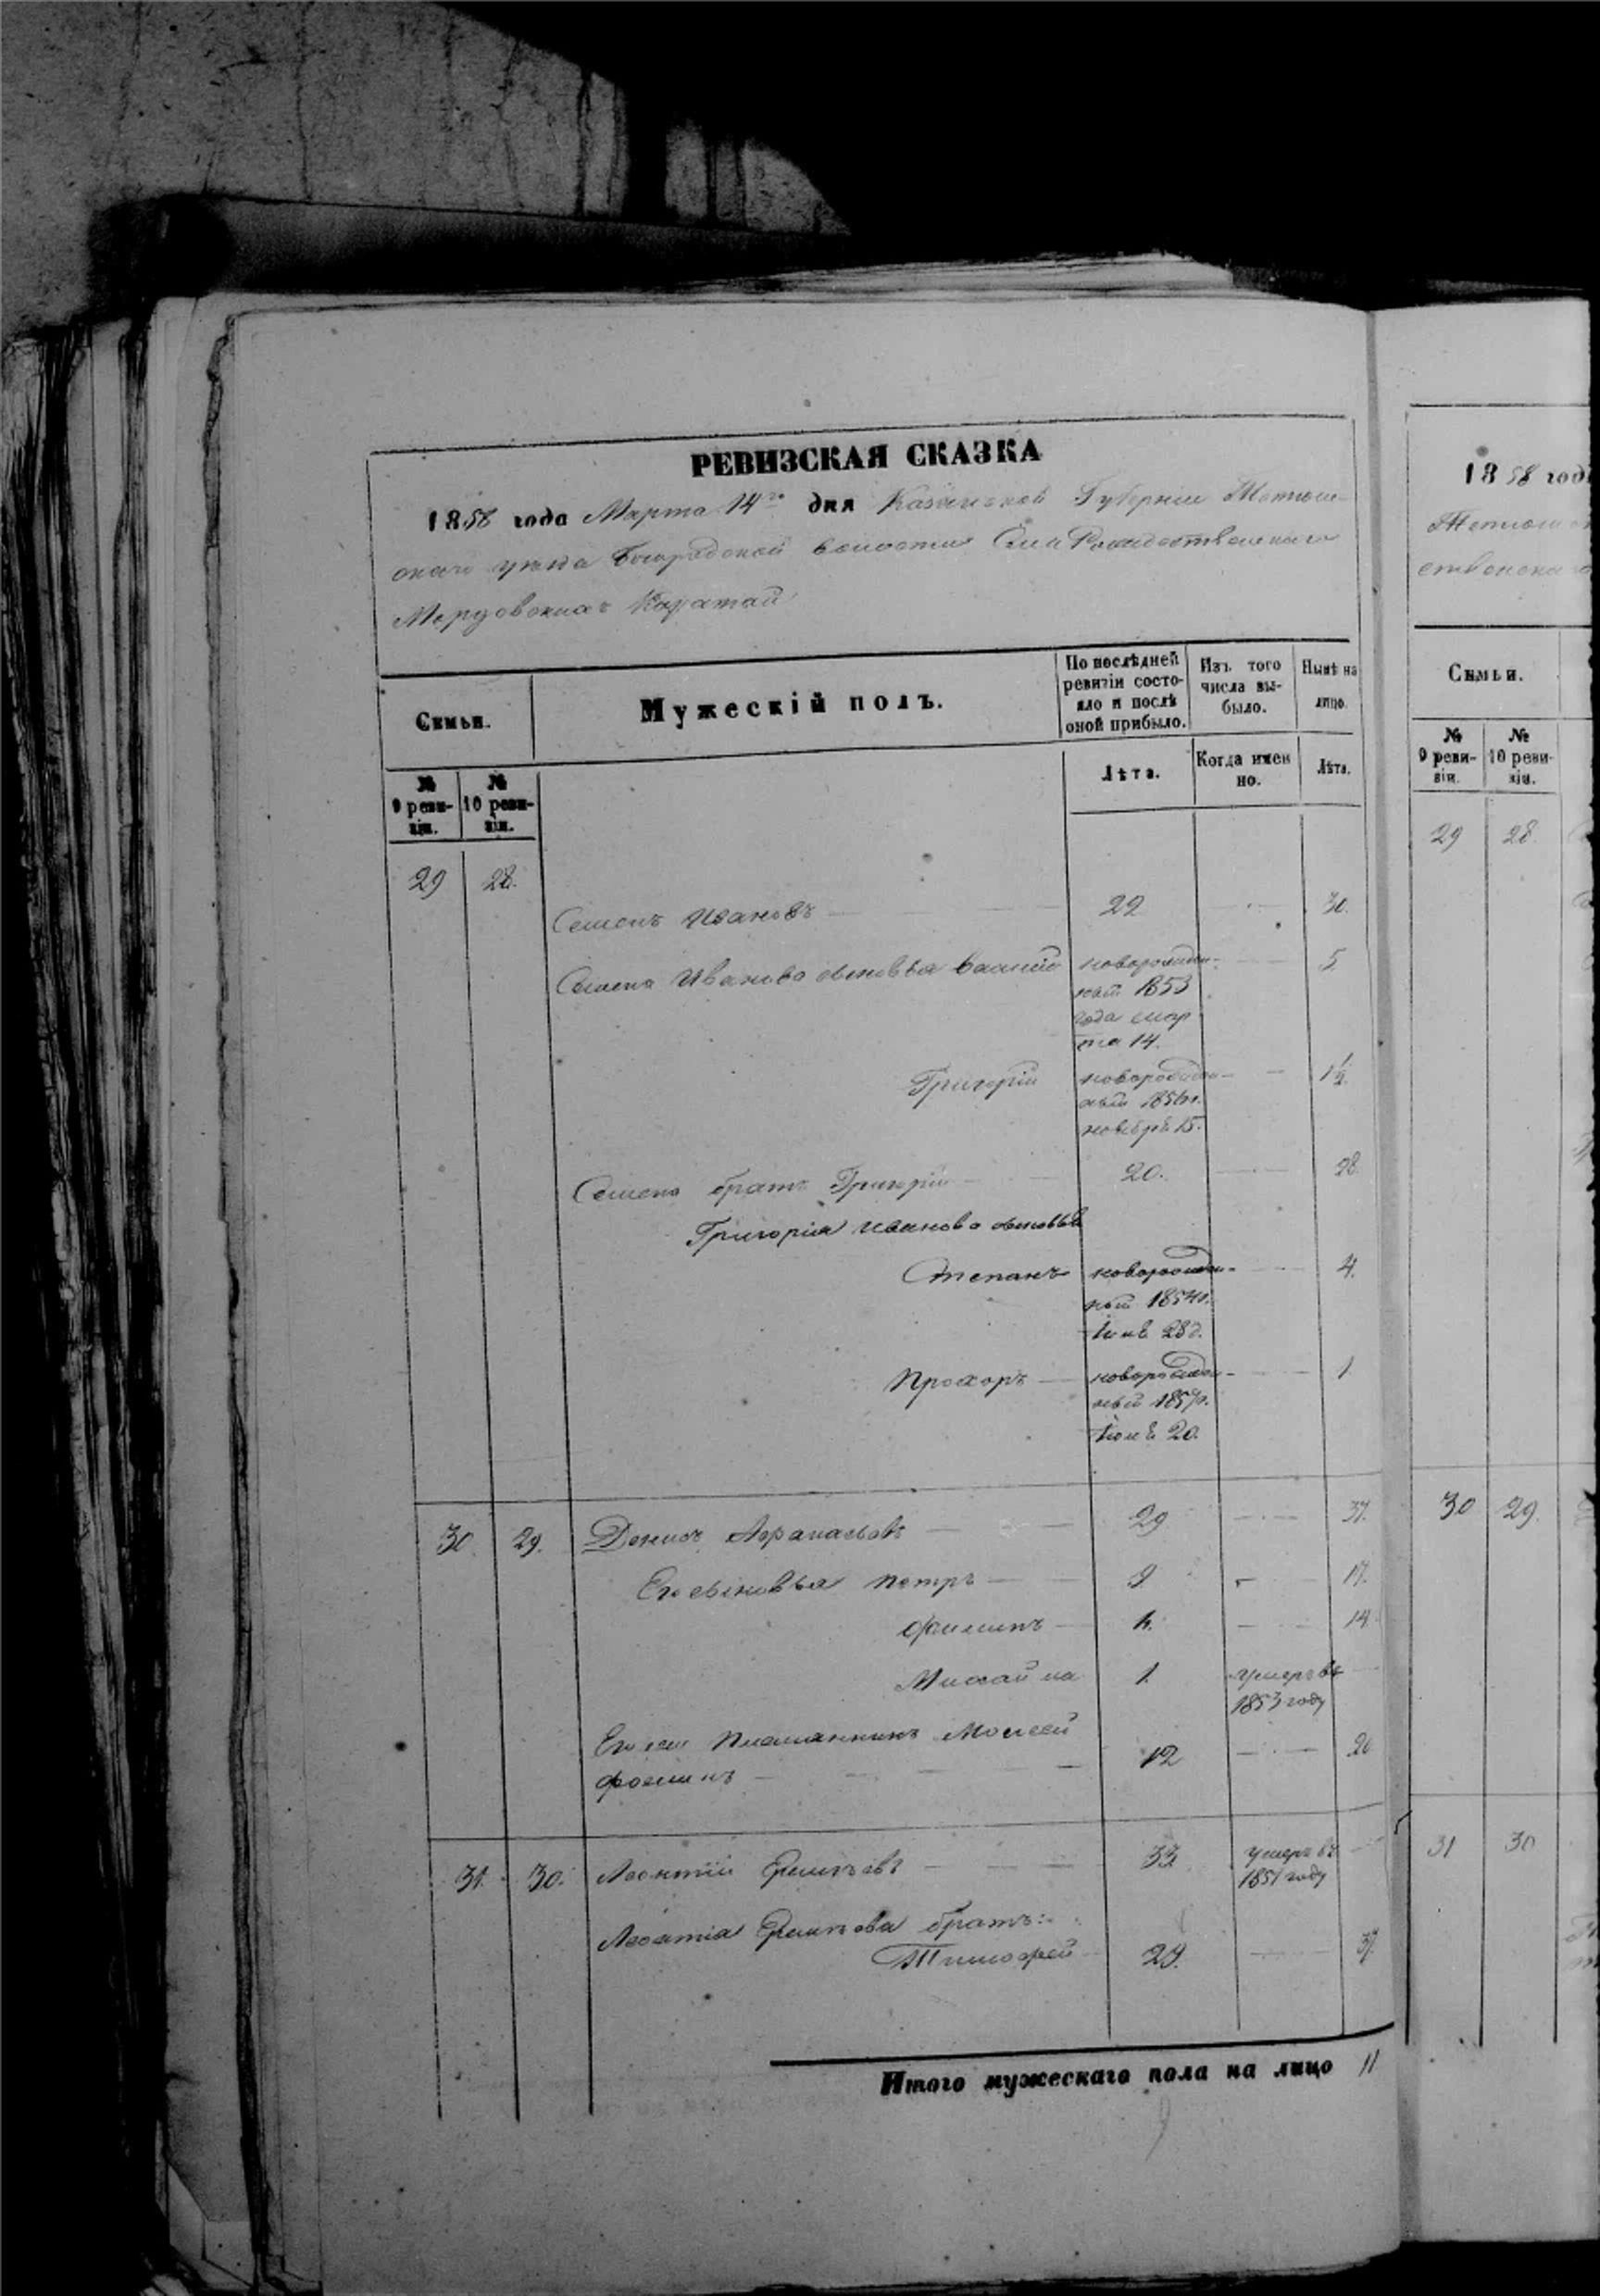 РЕВИЗСКАЯ СКАЗКА
1858 года Марта 14го дня Казанской Губернии Тетюш-
скаго уезда волости Села Рождественскаго
Мордовских Каратай
Семьи.
Мужескій полъ.
По послѣдней ревизіи состояло и послѣ оной прибыло.
Изъ того числа выбыло.
Нынѣ на лицо.
№ 9 ревизіи.
№ 10 ревизіи.
Лѣта.
Когда именно.
Лѣта.
29 28.
Семенъ Ивановъ 22 30.
Семена Иванова сыновья Василій новорожден- 5.
ный 1853
года мар
та 14.
Григорій новорожден- 1½.
ный 1856г.
ноября 15.
Семена братъ Григорій 20. 28
Григорія Иванова сыновья
Степанъ новорожден- 4.
ный 1854г.
28д.
Прохоръ новорожден- 1
ный 1857г.
20.
30. 29. Денисъ Афанасьевъ 29 37.
Его сыновья Петръ 9. 17.
Филипъ 14.
Михайла 1. умеръ въ
1853 году
Его же Племянникъ Моисей
Фоминъ 12 20
31. 30. Леонтій 33 умеръ въ
1851 году
Леонтія братъ:
Тимофей 29. 37.
Итого мужескаго пола на лицо 11
1858 год
Семьи.
№ 9 ревизіи.
№ 10 ревизіи.
29 28
30 29.
31 30